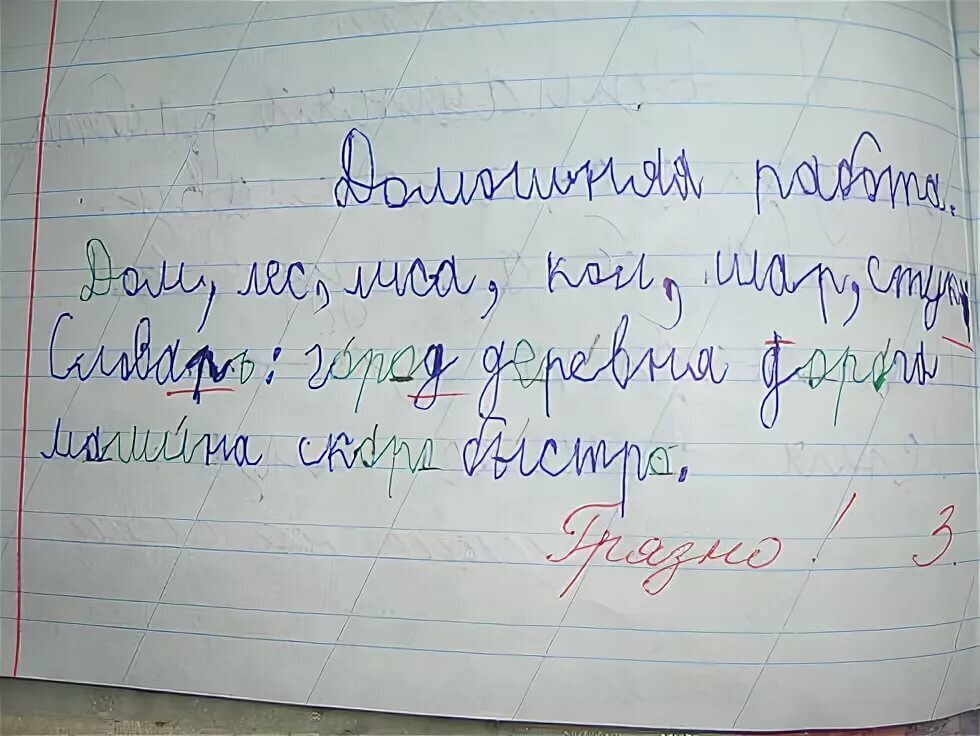 Домашняя работа.
Дом, лес, лиса, кот, шар, стук
Словарь: город деревня дорога
машина скоро быстро.
Грязно! 3.